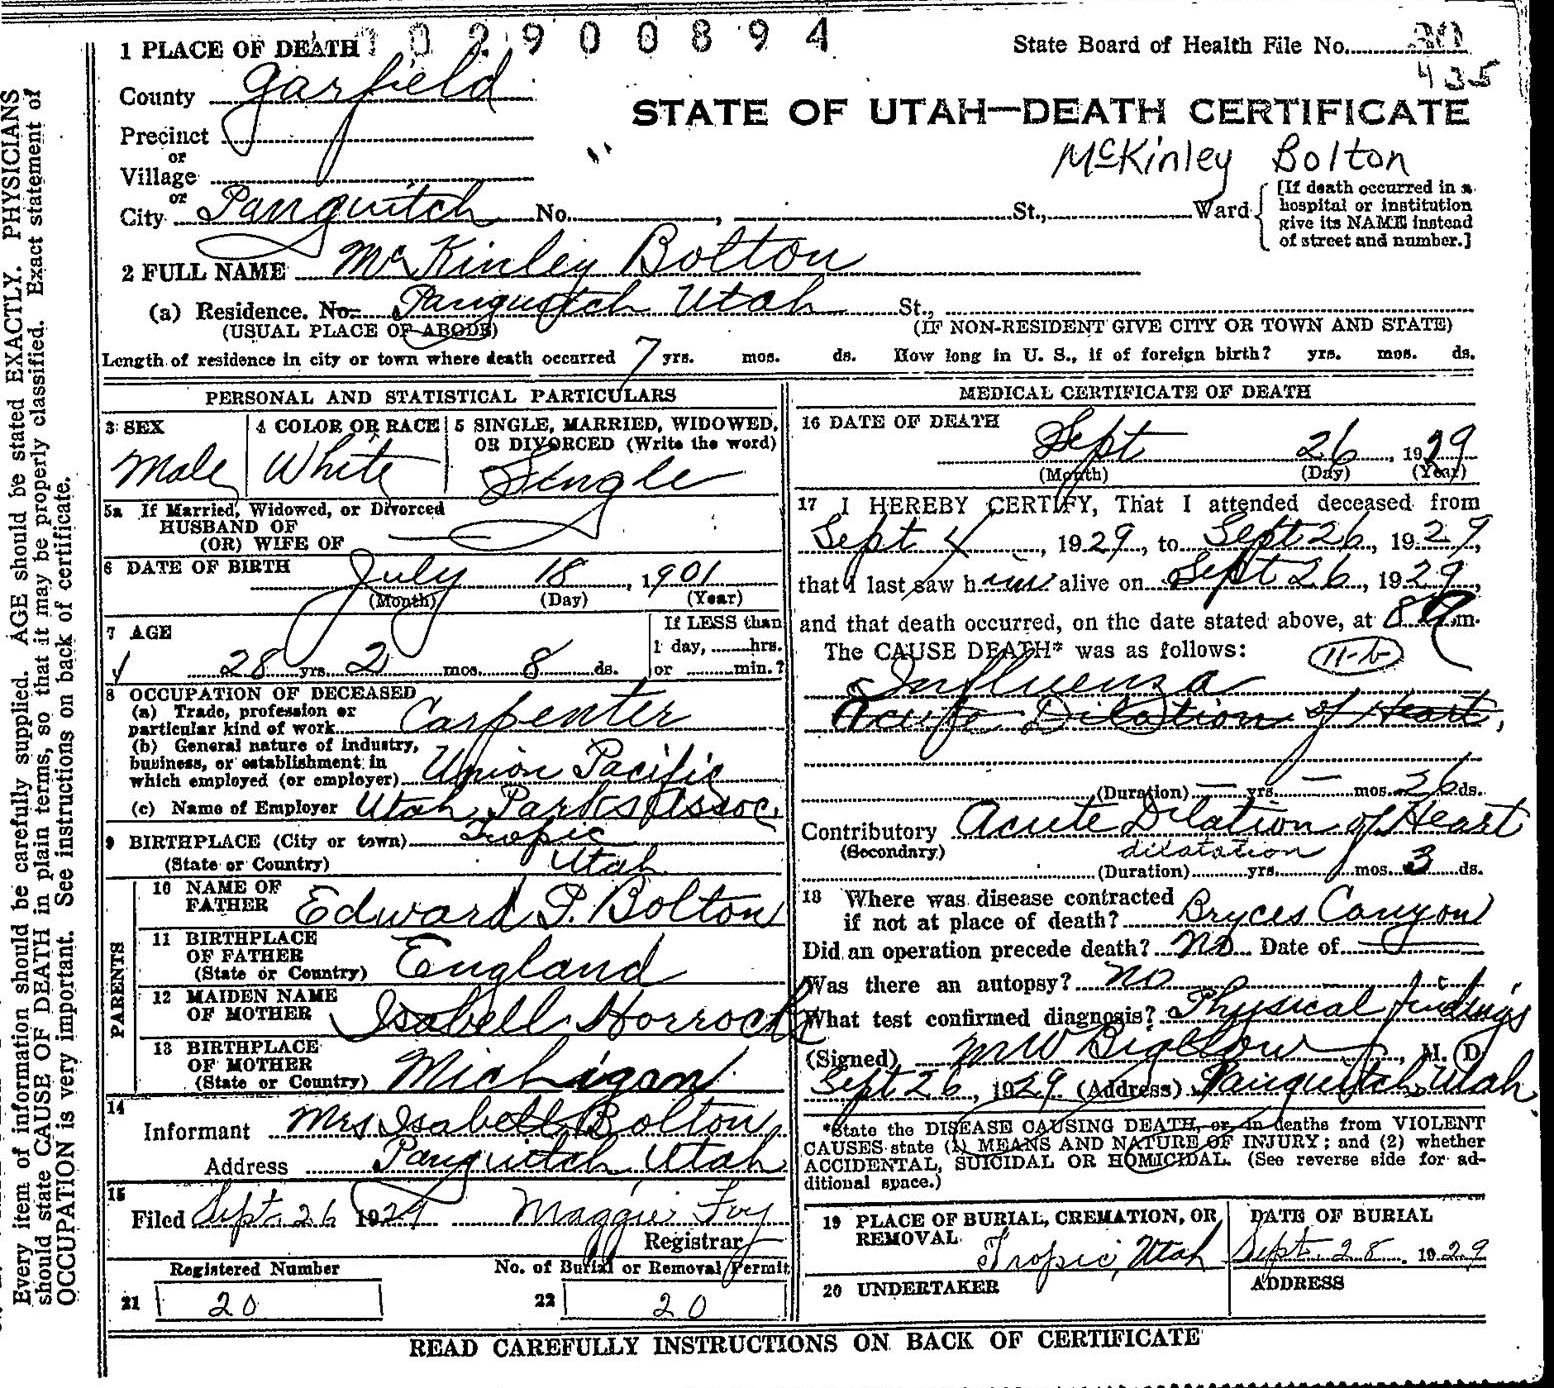 1 PLACE OF DEATH 1 0 2 9 0 0 8 9 4
State Board of Health File No.
435
County Garfield
STATE OF UTAH—DEATH CERTIFICATE
Precinct
McKinley Bolton
or
Village
or
City Panguitch No. , St., Ward
[If death occurred in a hospital or institution give its NAME instead of street and number.]
2 FULL NAME McKinley Bolton
(a) Residence. No. Panguitch Utah St.,
(USUAL PLACE OF ABODE) (IF NON-RESIDENT GIVE CITY OR TOWN AND STATE)
Length of residence in city or town where death occurred 7 yrs. mos. ds. How long in U. S., if of foreign birth? yrs. mos. ds.
PERSONAL AND STATISTICAL PARTICULARS
3 SEX
Male
4 COLOR OR RACE
White
5 SINGLE, MARRIED, WIDOWED,
OR DIVORCED (Write the word)
Single
5a If Married, Widowed, or Divorced
HUSBAND OF
(OR) WIFE OF
6 DATE OF BIRTH July 18, 1901
(Month) (Day) (Year)
7 AGE
28 yrs. 2 mos. 8 ds.
If LESS than
1 day, hrs.
or min.?
8 OCCUPATION OF DECEASED
(a) Trade, profession or
particular kind of work Carpenter
(b) General nature of industry,
business, or establishment in
which employed (or employer) Union Pacific
(c) Name of Employer Utah Parks Assoc.
9 BIRTHPLACE (City or town) Tropic
(State or Country) Utah
PARENTS
10 NAME OF
FATHER Edward P. Bolton
11 BIRTHPLACE
OF FATHER
(State or Country) England
12 MAIDEN NAME
OF MOTHER Isabell Horrocks
13 BIRTHPLACE
OF MOTHER
(State or Country) Michigan
14
Informant Mrs Isabell Bolton
Address Panguitch Utah
15
Filed Sept. 26 1929 Maggie Foy
Registrar
Registered Number
21 20
No. of Burial or Removal Permit
22 20
MEDICAL CERTIFICATE OF DEATH
16 DATE OF DEATH
Sept 26, 1929
(Month) (Day) (Year)
17 I HEREBY CERTIFY, That I attended deceased from
Sept 4, 1929, to Sept 26, 1929,
that I last saw him alive on Sept 26, 1929,
and that death occurred, on the date stated above, at 8 a m.
The CAUSE DEATH* was as follows: 11-b
Influenza
Acute Dilation of Heart,
(Duration) — yrs. — mos. 26 ds.
Contributory Acute Dilation of Heart
(Secondary) dilatation
(Duration) yrs. mos. 3 ds.
18 Where was disease contracted
if not at place of death? Bryces Canyon
Did an operation precede death? No Date of
Was there an autopsy? No
What test confirmed diagnosis? Physical findings
(Signed) M W Bigelow, M. D.
Sept 26, 1929 (Address) Panguitch, Utah.
*State the DISEASE CAUSING DEATH, or in deaths from VIOLENT
CAUSES state (1) MEANS AND NATURE OF INJURY; and (2) whether
ACCIDENTAL, SUICIDAL OR HOMICIDAL. (See reverse side for ad-
ditional space.)
19 PLACE OF BURIAL, CREMATION, OR
REMOVAL Tropic, Utah
DATE OF BURIAL
Sept. 28, 1929
20 UNDERTAKER
ADDRESS
READ CAREFULLY INSTRUCTIONS ON BACK OF CERTIFICATE
Every item of information should be carefully supplied. AGE should be stated EXACTLY. PHYSICIANS
should state CAUSE OF DEATH in plain terms, so that it may be properly classified. Exact statement of
OCCUPATION is very important. See instructions on back of certificate.